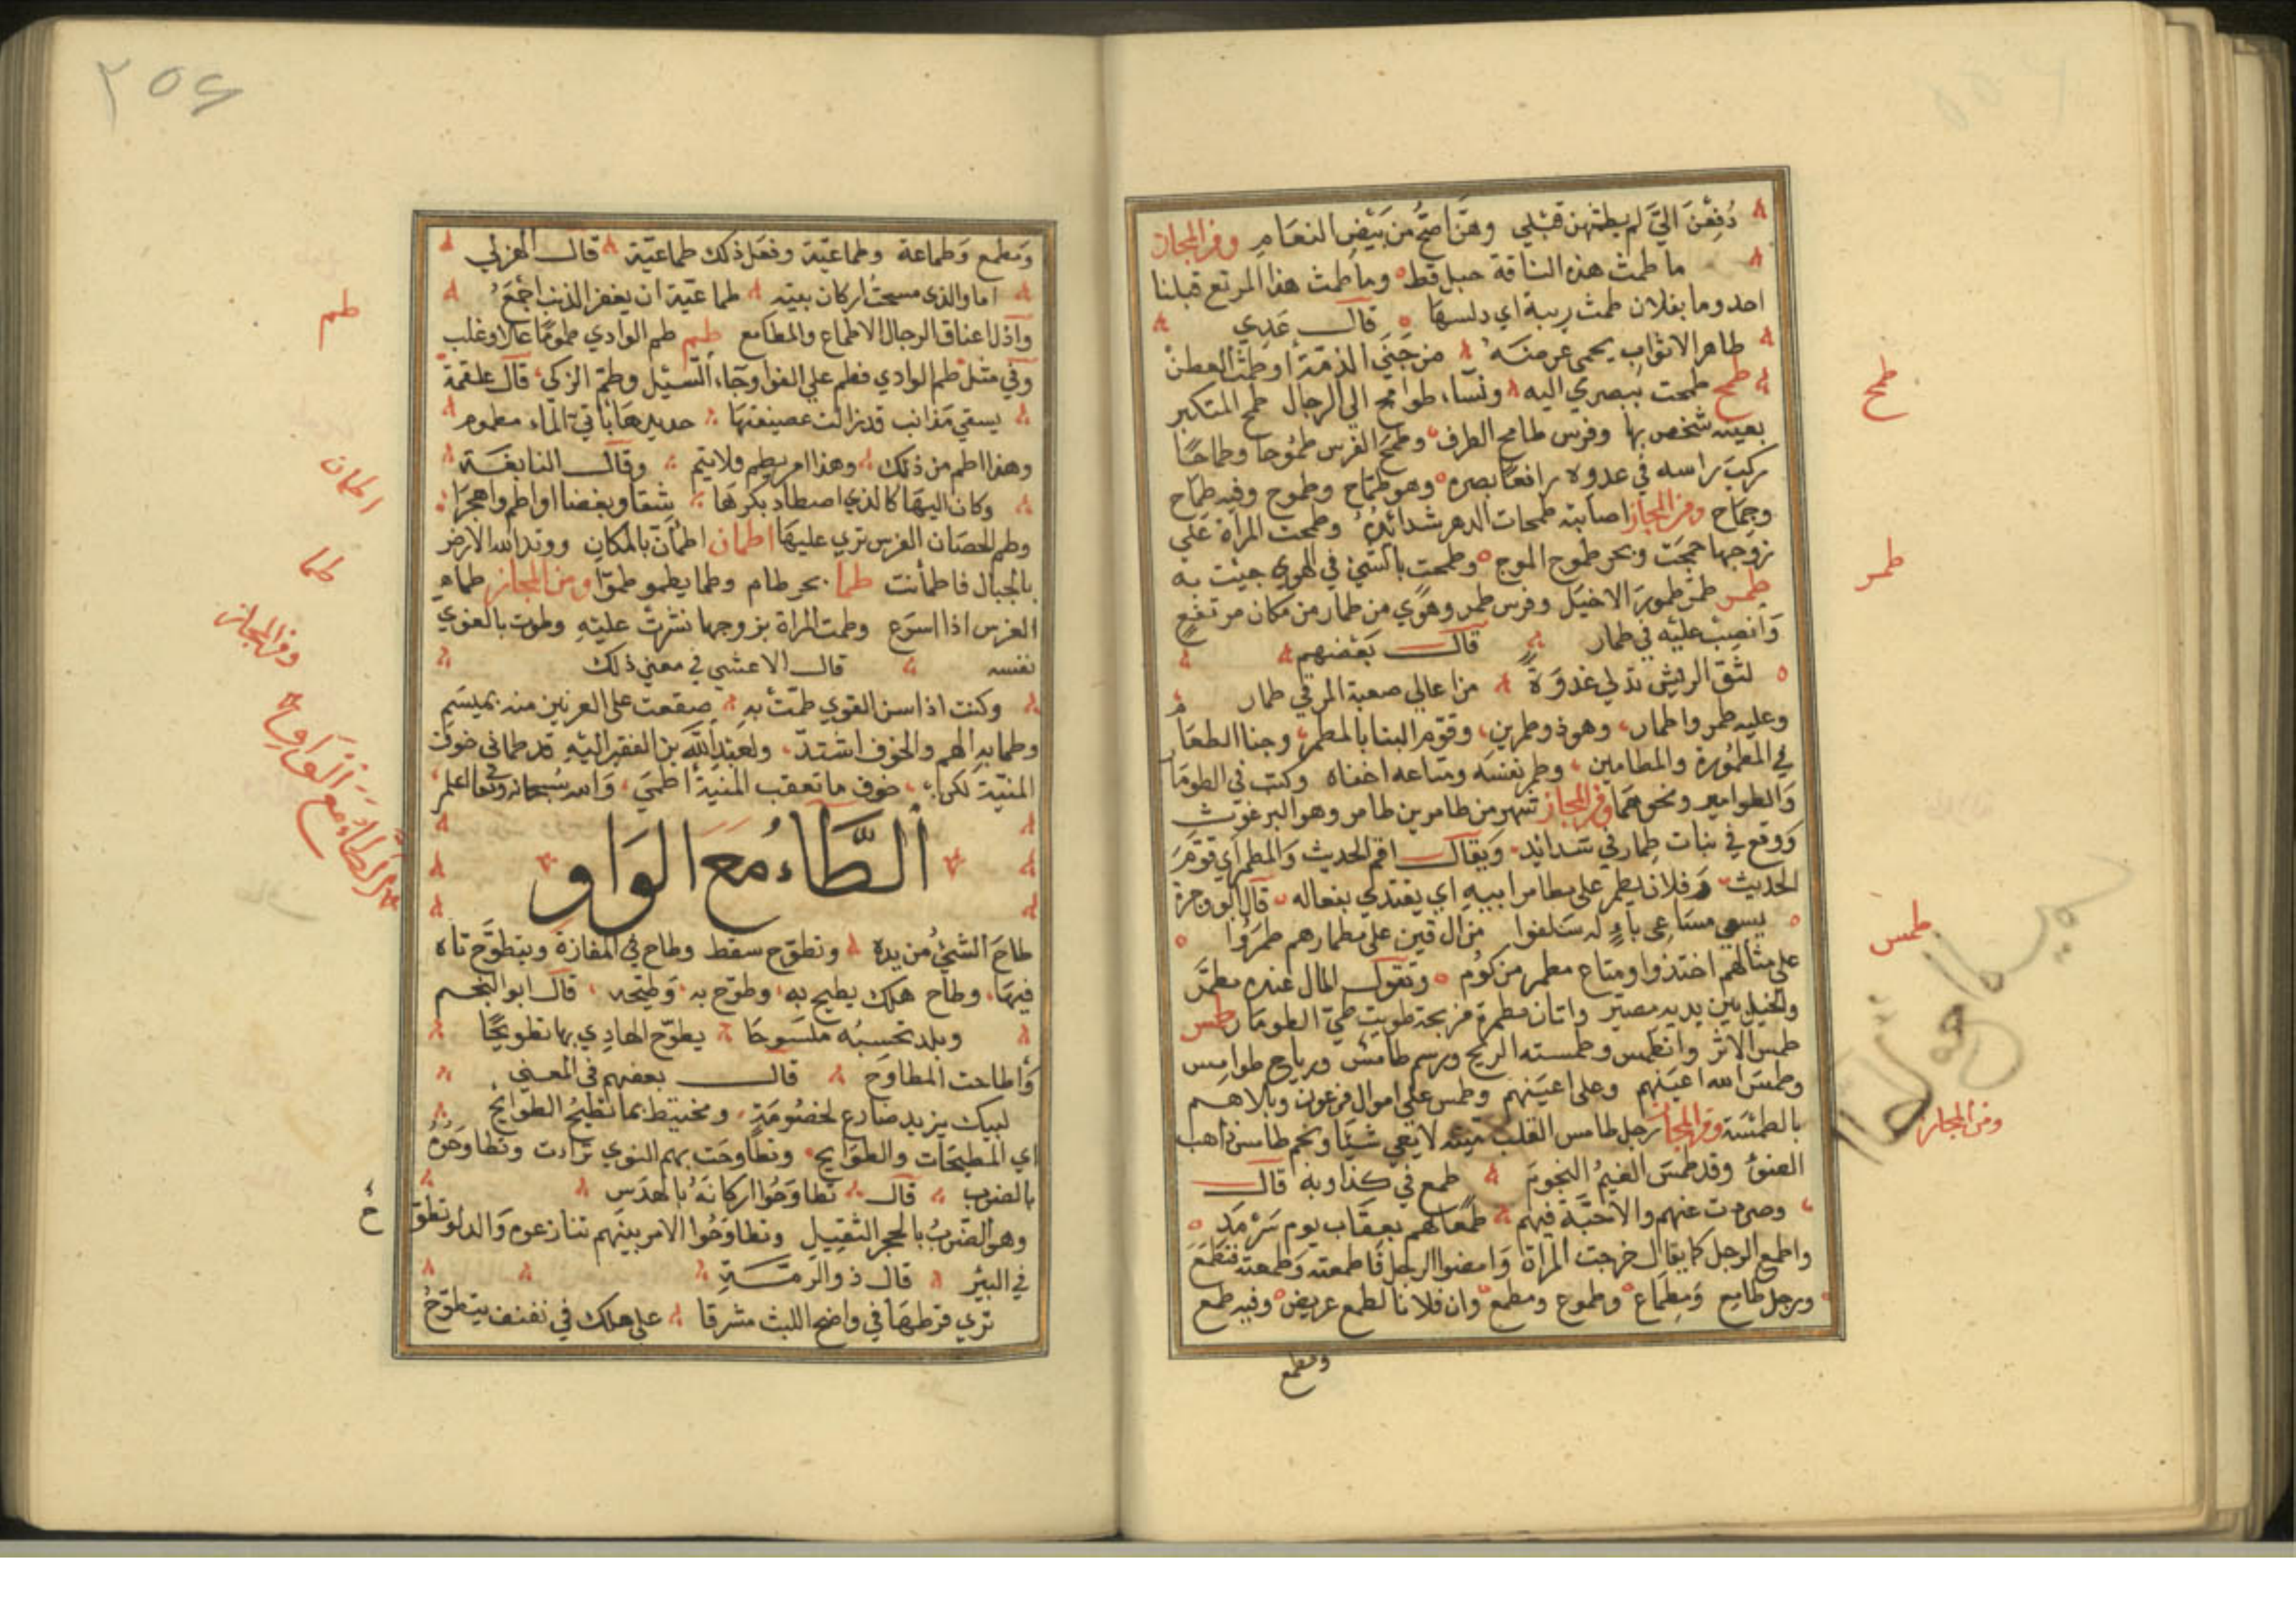 دُفِعْنَ اليَّ لم يطمثهن قبلي وهنّ اصحّ من بَيْضِ النعامِ ومن المجاز
ما طمث هذه الناقة حبل قط وما طمث هذا المرتع قبلنا
احد وما بفلان طمث ريبة اي دلسها قال عَدِي
طاهر الاثواب يحمى عرضه من خَنَى الذمّة أو طمث العطن
طمح طمحت ببصري اليه ونساء طوامح الي الرجال طمح المتكبر
بعينه شخص بها وفرس طامح الطرف وطمح الفرس طمُوحا وطماحًا
ركب راسه في عدوه رافعًا بصره وهو طمّاح وطموح وفيه طِمَاح
وجِمَاح ومن المجاز اصابته طمحات الدهر شدائدُهُ وطمحت المراة علي
زوجها جمحَت وبحر طموح الموج وطمحت بالشي في الهوي
طمر طمر طمورَ الاخيَل وفرس طمر وهَوَي من طمار من مكان مرتفعٍ
وَانصِبْ عليْه في طمار قال بَعْضهم
لثق الريش تدلي غدوَةً من اعالي صعبة المرقي طمار
وعليه طمر واطمار وهو ذو طمرين وقوّم البنا بالمطمر وخبا الطعَا
في المطمُورة والمطامير وطمر نفسَه ومتاعه اخفاه وكتب في الطومَا
وَالطوامير ونحوهَما ومن المجاز اشهر من طامر بن طامر وهو البرغوث
وَوقع في بنات طِمار في شدائد ويقال اقم الحديث وَالمطمر أي قوّمَ
الحديث وَفلان يطمر على مطامر ابيهِ اي يقتدي بفعاله قال ابو وجزة
يسعي مسَاعِى باءٍ له سَلفوا من ال قين على مطمارهم طمرُوا
علي مثالهم احتذوا ومتاع مطمر مركوُم وتقول المال عنده مطمَّر
والخيل بين يديه مضبّر واتان مطمرة مزبجة طويت طيّ الطومَار طمس
طمس الاثر وانطمس وطمسته الريح ورسم طامسٌ ورياح طوامس
وطمسَ الله اعيَنهم وعلى اعيَنهم وطمس على اموال فرعون وبلاهم
بالطمسَة ومن المجاز رجل طامس القلب ميّته لا يعي شيًا ونجم طامس ذاهب
الضوْءِ وقد طمَسَ الغيمُ النجومَ طمع في كذا وبه قال
وصرمت عنهم والاحبّة فيهم طمعًا لهم بعقَاب يوم سَرْمَدِ
واطمع الرجل كا يقال خرجت المراة وَامضوا الرجل فاطمعته وَطمعته فتطمّعَ
ورجل طامع وَمطمَاع وطموع ومطمع وان فلانا لطمع عريض وفيه طمع
ومطمع
طمح
طمر
طمس
ومن المجاز
٢٥٤
وَمطمع وَطماعة وطماعيّة وفعَل ذلك طماعيّة قال الهزلي
اما والذي مسحتُ اركان بيتِه طماعيّة ان يغفر الذنب اجْمَعُ
وَاذل اعناق الرجال الاطماع والمطامع طم طم الوادي طمومًا عَلا وغلب
وَفي مثل طم الوادي فطم علي القرا وجَاء السَّيْل وطمّ الركي قال علقمة
يسقي مَذانب قد زالت عصيفتهَا حديرهَا باتي الماء مطموم
وهذا اطم من ذلك وهذا امر يطم ولا يتم وقال النابغَة
وكان اليهَا كالذي اصطاد بكرهَا شقاو بغضا او اطم واهجرَا
وطم الحصَان الفرس نزي عليهَا اطمان اطمَأن بالمكان ووتد الله الارض
بالجبال فاطمأنت طما بحر طام وطما يطمو طموّا ومن المجاز طمَاهِ
الفرس اذا اسَرع وطمت المراة بزوجها نشزت عليْهِ وطموت بالغوي
نفسه قال الاعشي في معني ذلك
وكنت اذا اسن القوي طمَتْ بهِ صقعت على العرنين منه بميسَمِ
وطما به الهم والخوف اشتدّ ولعبْد اللّهِ بن الفقير اليْهِ قد طماني خوف
المنيّة لكن خوف ما تعقب المنيّة اطميَ وَالله سُبحانه وتعَا اعلم
الطَّاء مَعَ الوَاو
طاحَ الشيْ من يده وتطوّح سقط وطاح في المفازة ويتطوّح تاه
فيهَا وطاح هلك يطيح به وطوّح به وَطيّحه قال ابو النجم
وبلد تحسبُه ملسَوحَا يطوّح الهادِي بها تطويْحَا
وَأطاحت المطاوح قال بعضهم في المعني
لبيك يزيد ضارع لخصُومَةٍ ومختبط بما تُطيحُ الطوَايح
اي المطيحَات والطوَايح وتطاوحَت بهم النوي ترَادت وتطاوَحُوهُ
بالضرب قال تطاوَحُوا اركانَهُ بالهدَس
وهو الضرَبُ بالحجر الثقيل وتطاوَحُوا الامر بينَهم تنازعوه وَالدلو تطوّ
ح
في البئر قال ذو الرمّة
تري قرطهَا في واضح الليث مشرقا على هلك في نفنف يتطوّحُ
طم
اطمان
طما
ومن المجاز
الطاء مع الواو